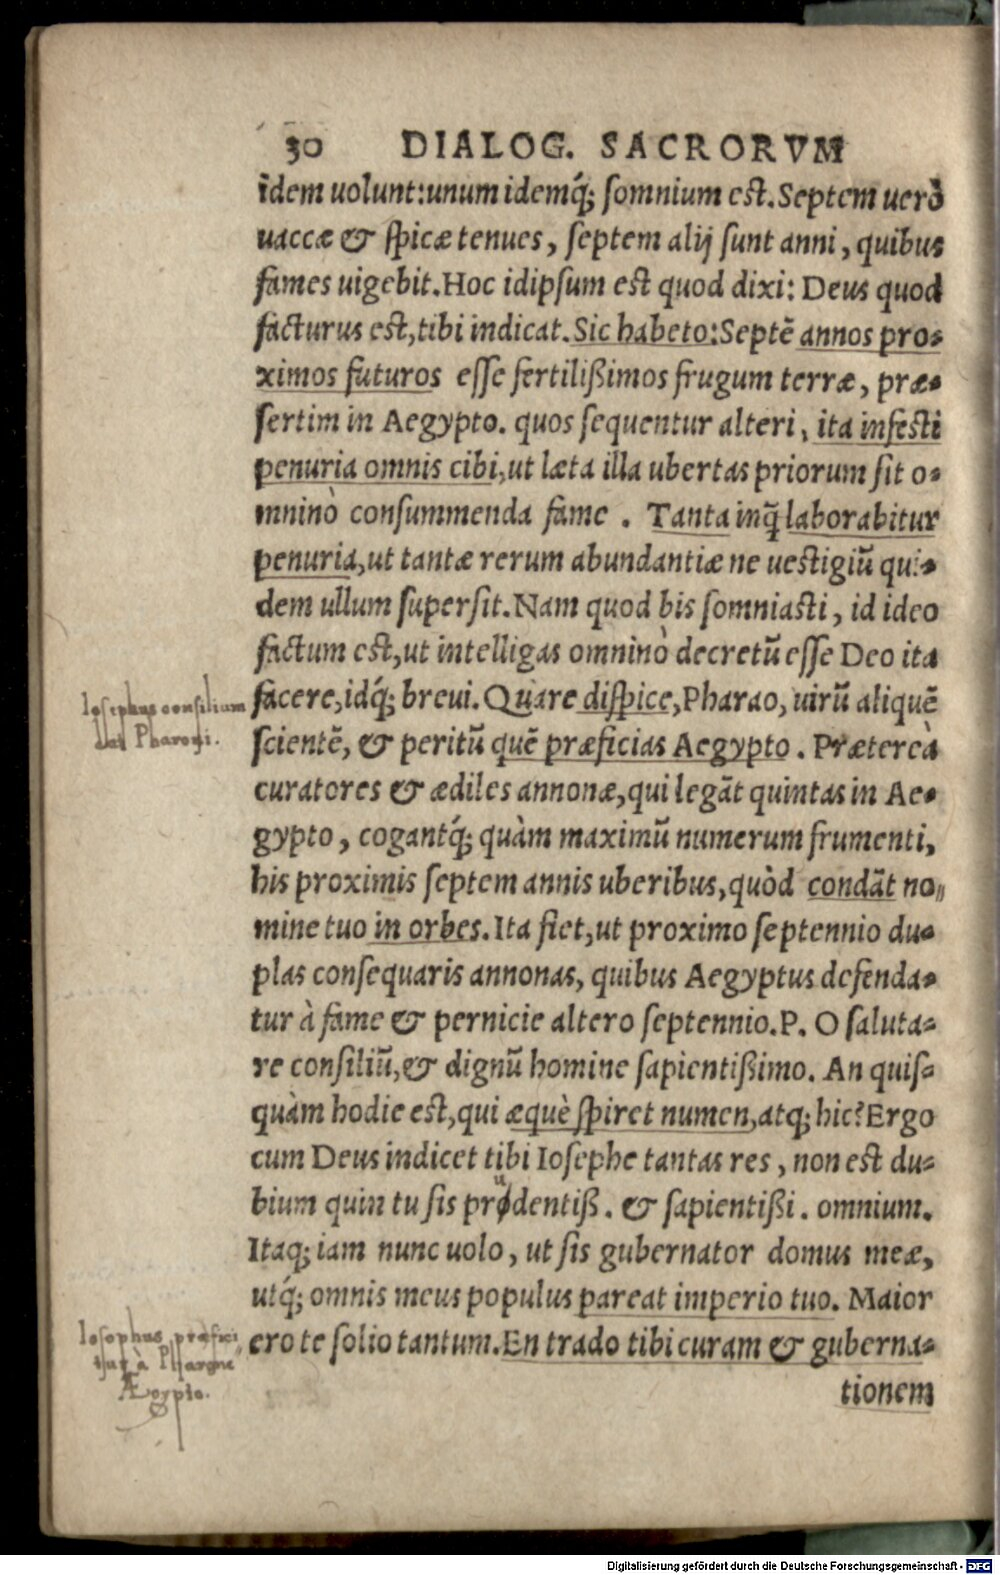 30 DIALOG. SACRORVM
idem uolunt: unum idemq́; somnium est. Septem uerò
uaccæ & spicæ tenues, septem alij sunt anni, quibus
fames uigebit. Hoc idipsum est quod dixi: Deus quod
facturus est, tibi indicat. Sic habeto: Septē annos pro-
ximos futuros esse fertilißimos frugum terræ, præ-
sertim in Aegypto. quos sequentur alteri, ita infesti
penuria omnis cibi, ut læta illa ubertas priorum sit o-
mninò consummenda fame. Tanta inq̃ laborabitur
penuria, ut tantæ rerum abundantiæ ne uestigiū qui-
dem ullum supersit. Nam quod bis somniasti, id ideo
factum est, ut intelligas omninò decretū esse Deo ita
facere, idq́; breui. Quare dispice, Pharao, uirū aliquē
scientē, & peritū quē præficias Aegypto. Prætereà
curatores & ædiles annonæ, qui legāt quintas in Ae-
gypto, cogantq́; quàm maximū numerum frumenti,
his proximis septem annis uberibus, quòd condāt no-
mine tuo in orbes. Ita fiet, ut proximo septennio du-
plas consequaris annonas, quibus Aegyptus defenda-
tur à fame & pernicie altero septennio. P. O saluta-
re consiliū, & dignū homine sapientißimo. An quis-
quàm hodie est, qui æquè spiret numen, atq; hic? Ergo
cum Deus indicet tibi Iosephe tantas res, non est du-
bium quin tu sis prudentiß. & sapientißi. omnium.
Itaq; iam nunc uolo, ut sis gubernator domus meæ,
utq́; omnis meus populus pareat imperio tuo. Maior
ero te solio tantum. En trado tibi curam & guberna-
tionem
Iosephus consilium
dat Pharoni.
Iosephus præfici
tur à Pharaone
Ægypto.
Digitalisierung gefördert durch die Deutsche Forschungsgemeinschaft - DFG